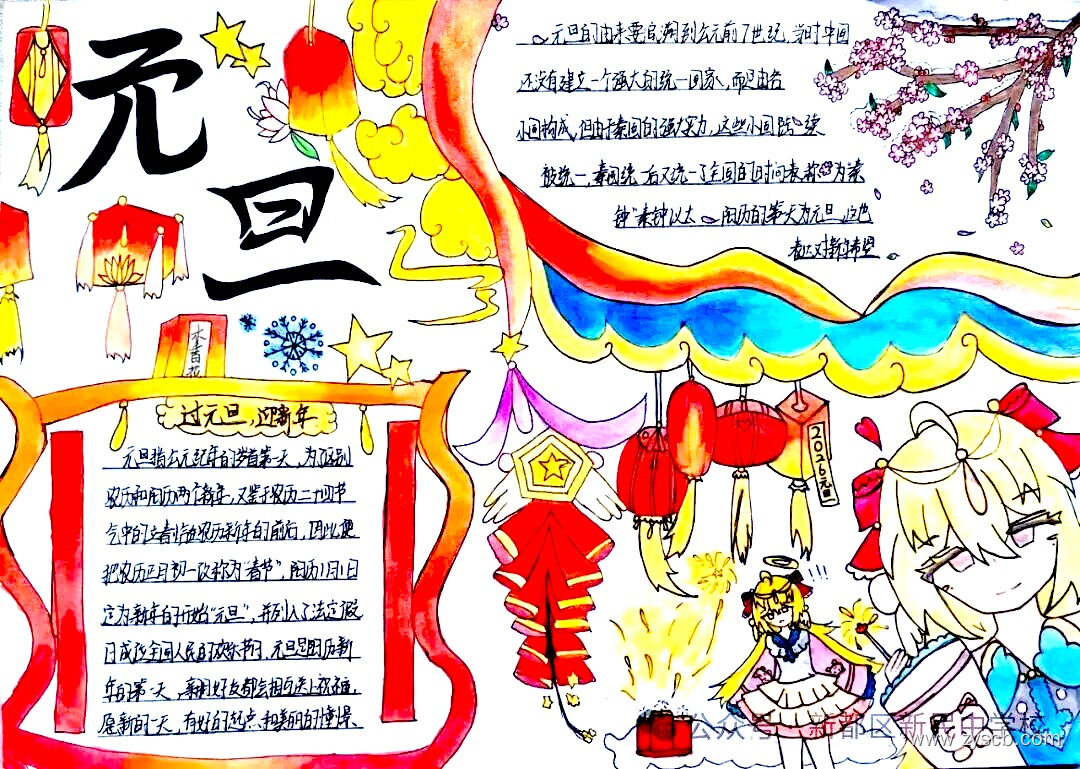 元旦
元旦的由来要追溯到公元前7世纪,当时中国
还没有建立一个强大的统一国家,而是由各
小国构成,但由于秦国的强大实力,这些小国陆续
被统一,秦国统一后又统一了全国的时间表,称为"秦
钟"秦钟以太
历的第一天为元旦,这也
表达对新的希望
过元旦,迎新年
元旦指公元纪年的岁首第一天,为了区别
农历和阳历两个新年,又鉴于农历二十四节
气中的立春恰在农历新年的前后,因此便
把农历正月初一改称为"春节",阳历1月1日
定为新年的开始"元旦",并列入了法定假
日成为全国人民的欢乐节日,元旦是阳历新
年的第一天,亲朋好友都会相互送上祝福,
愿新的一天,有好的起点和美丽的憧憬
2026元旦
!!!
公众号 新都区新民中学校
www.zyscb.com